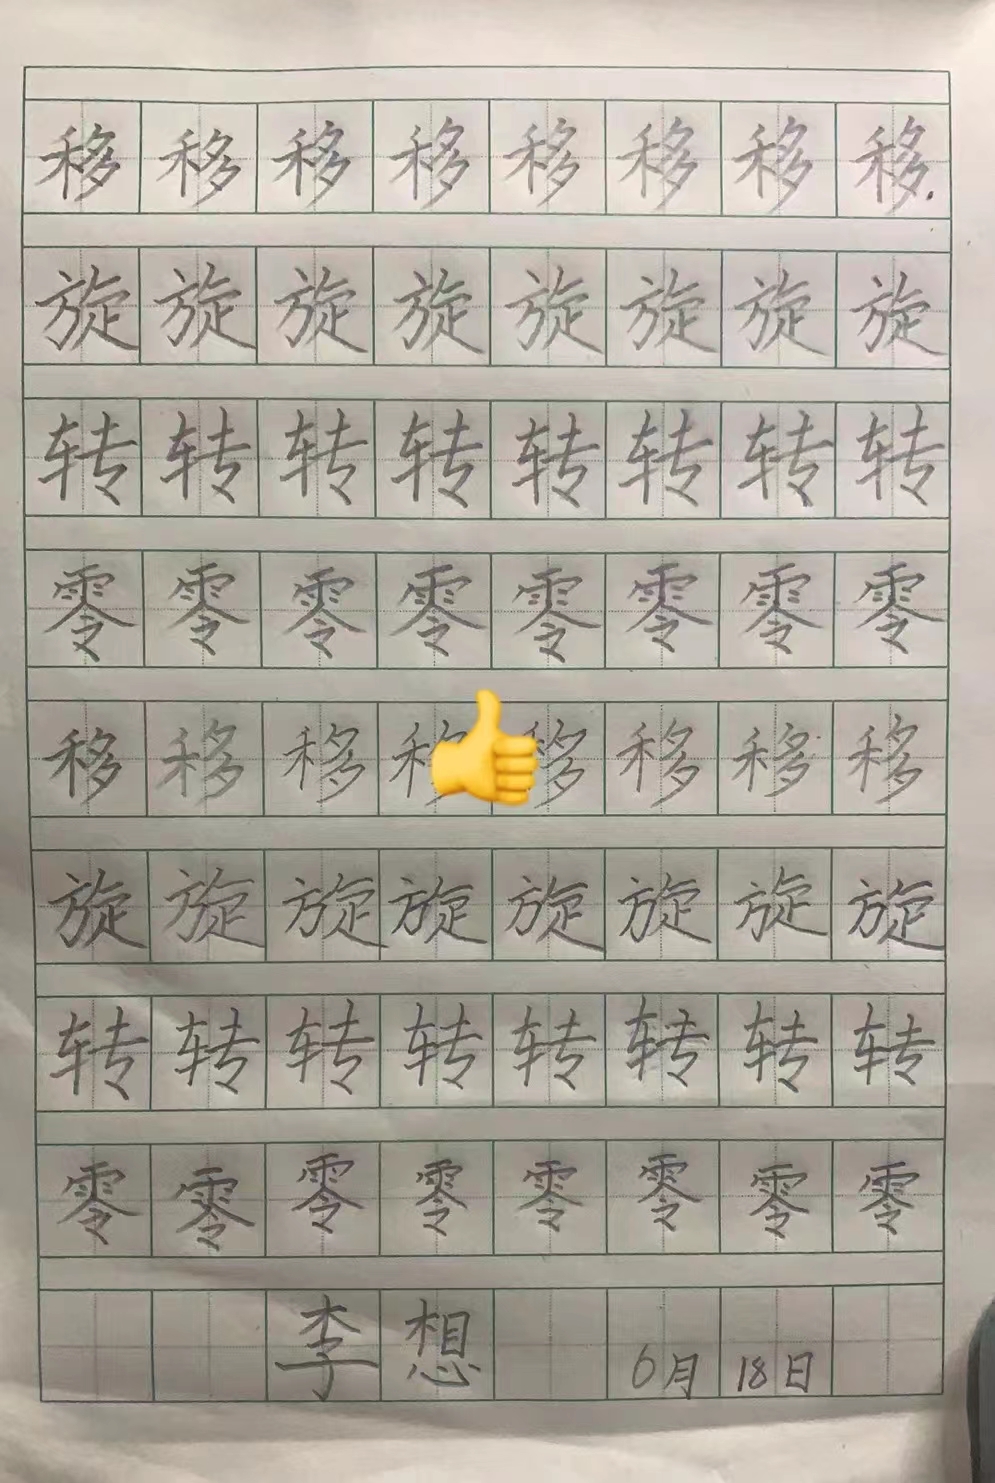 移移移移移移移移
旋旋旋旋旋旋旋旋
转转转转转转转转
零零零零零零零零
移移移移移移移移
旋旋旋旋旋旋旋旋
转转转转转转转转
零零零零零零零零
李想 6月18日